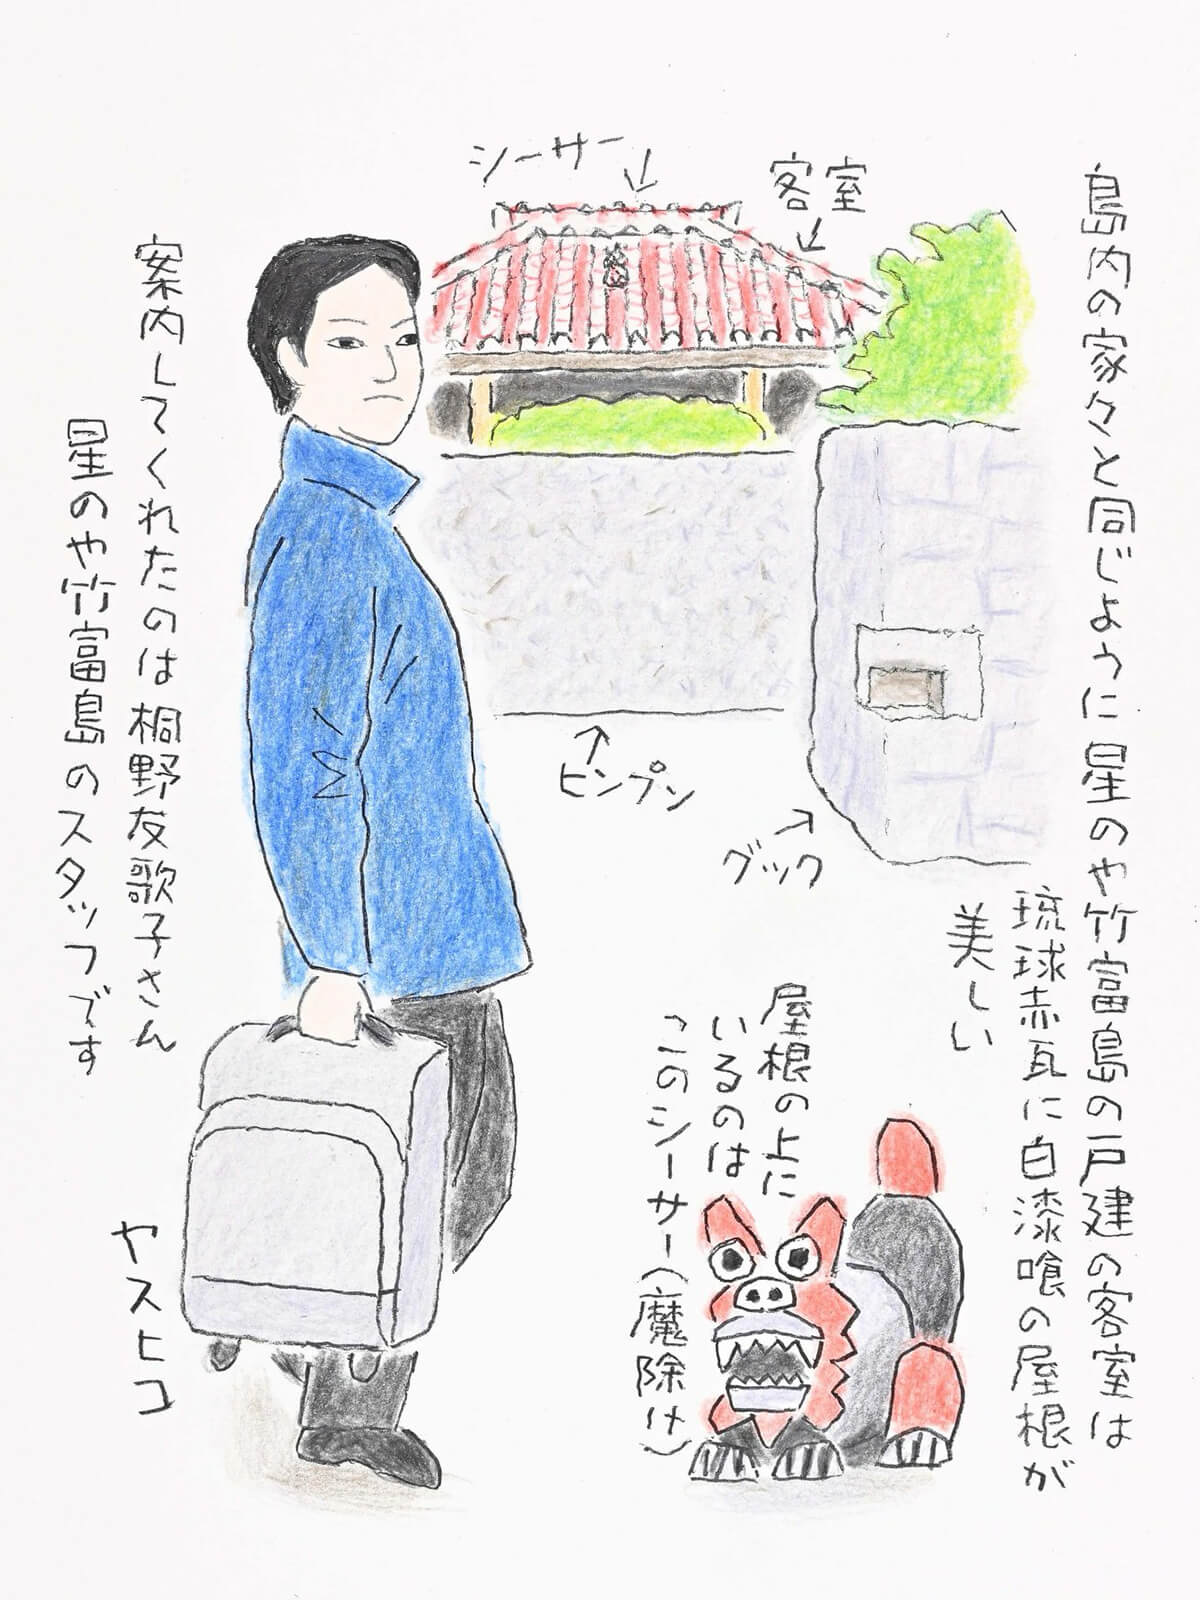 シーサー
客室
島内の家々と同じように星のや竹富島の戸建の客室は
琉球赤瓦に白漆喰の屋根が
美しい
ヒンプン
グック
屋根の上に
いるのは
このシーサー(魔除け)
案内してくれたのは桐野友歌子さん
星のや竹富島のスタッフです
ヤスヒコ